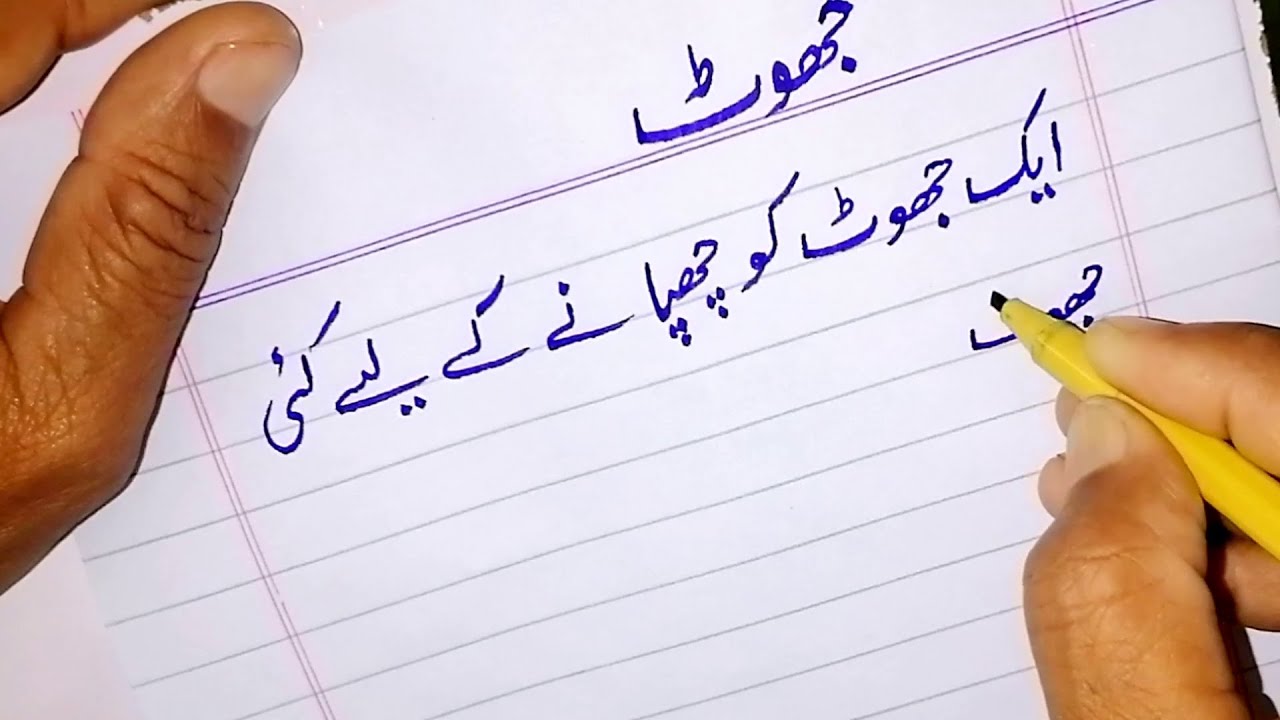 جھوٹ
ایک جھوٹ کو چھپانے کے لیے کئی
جھوٹ